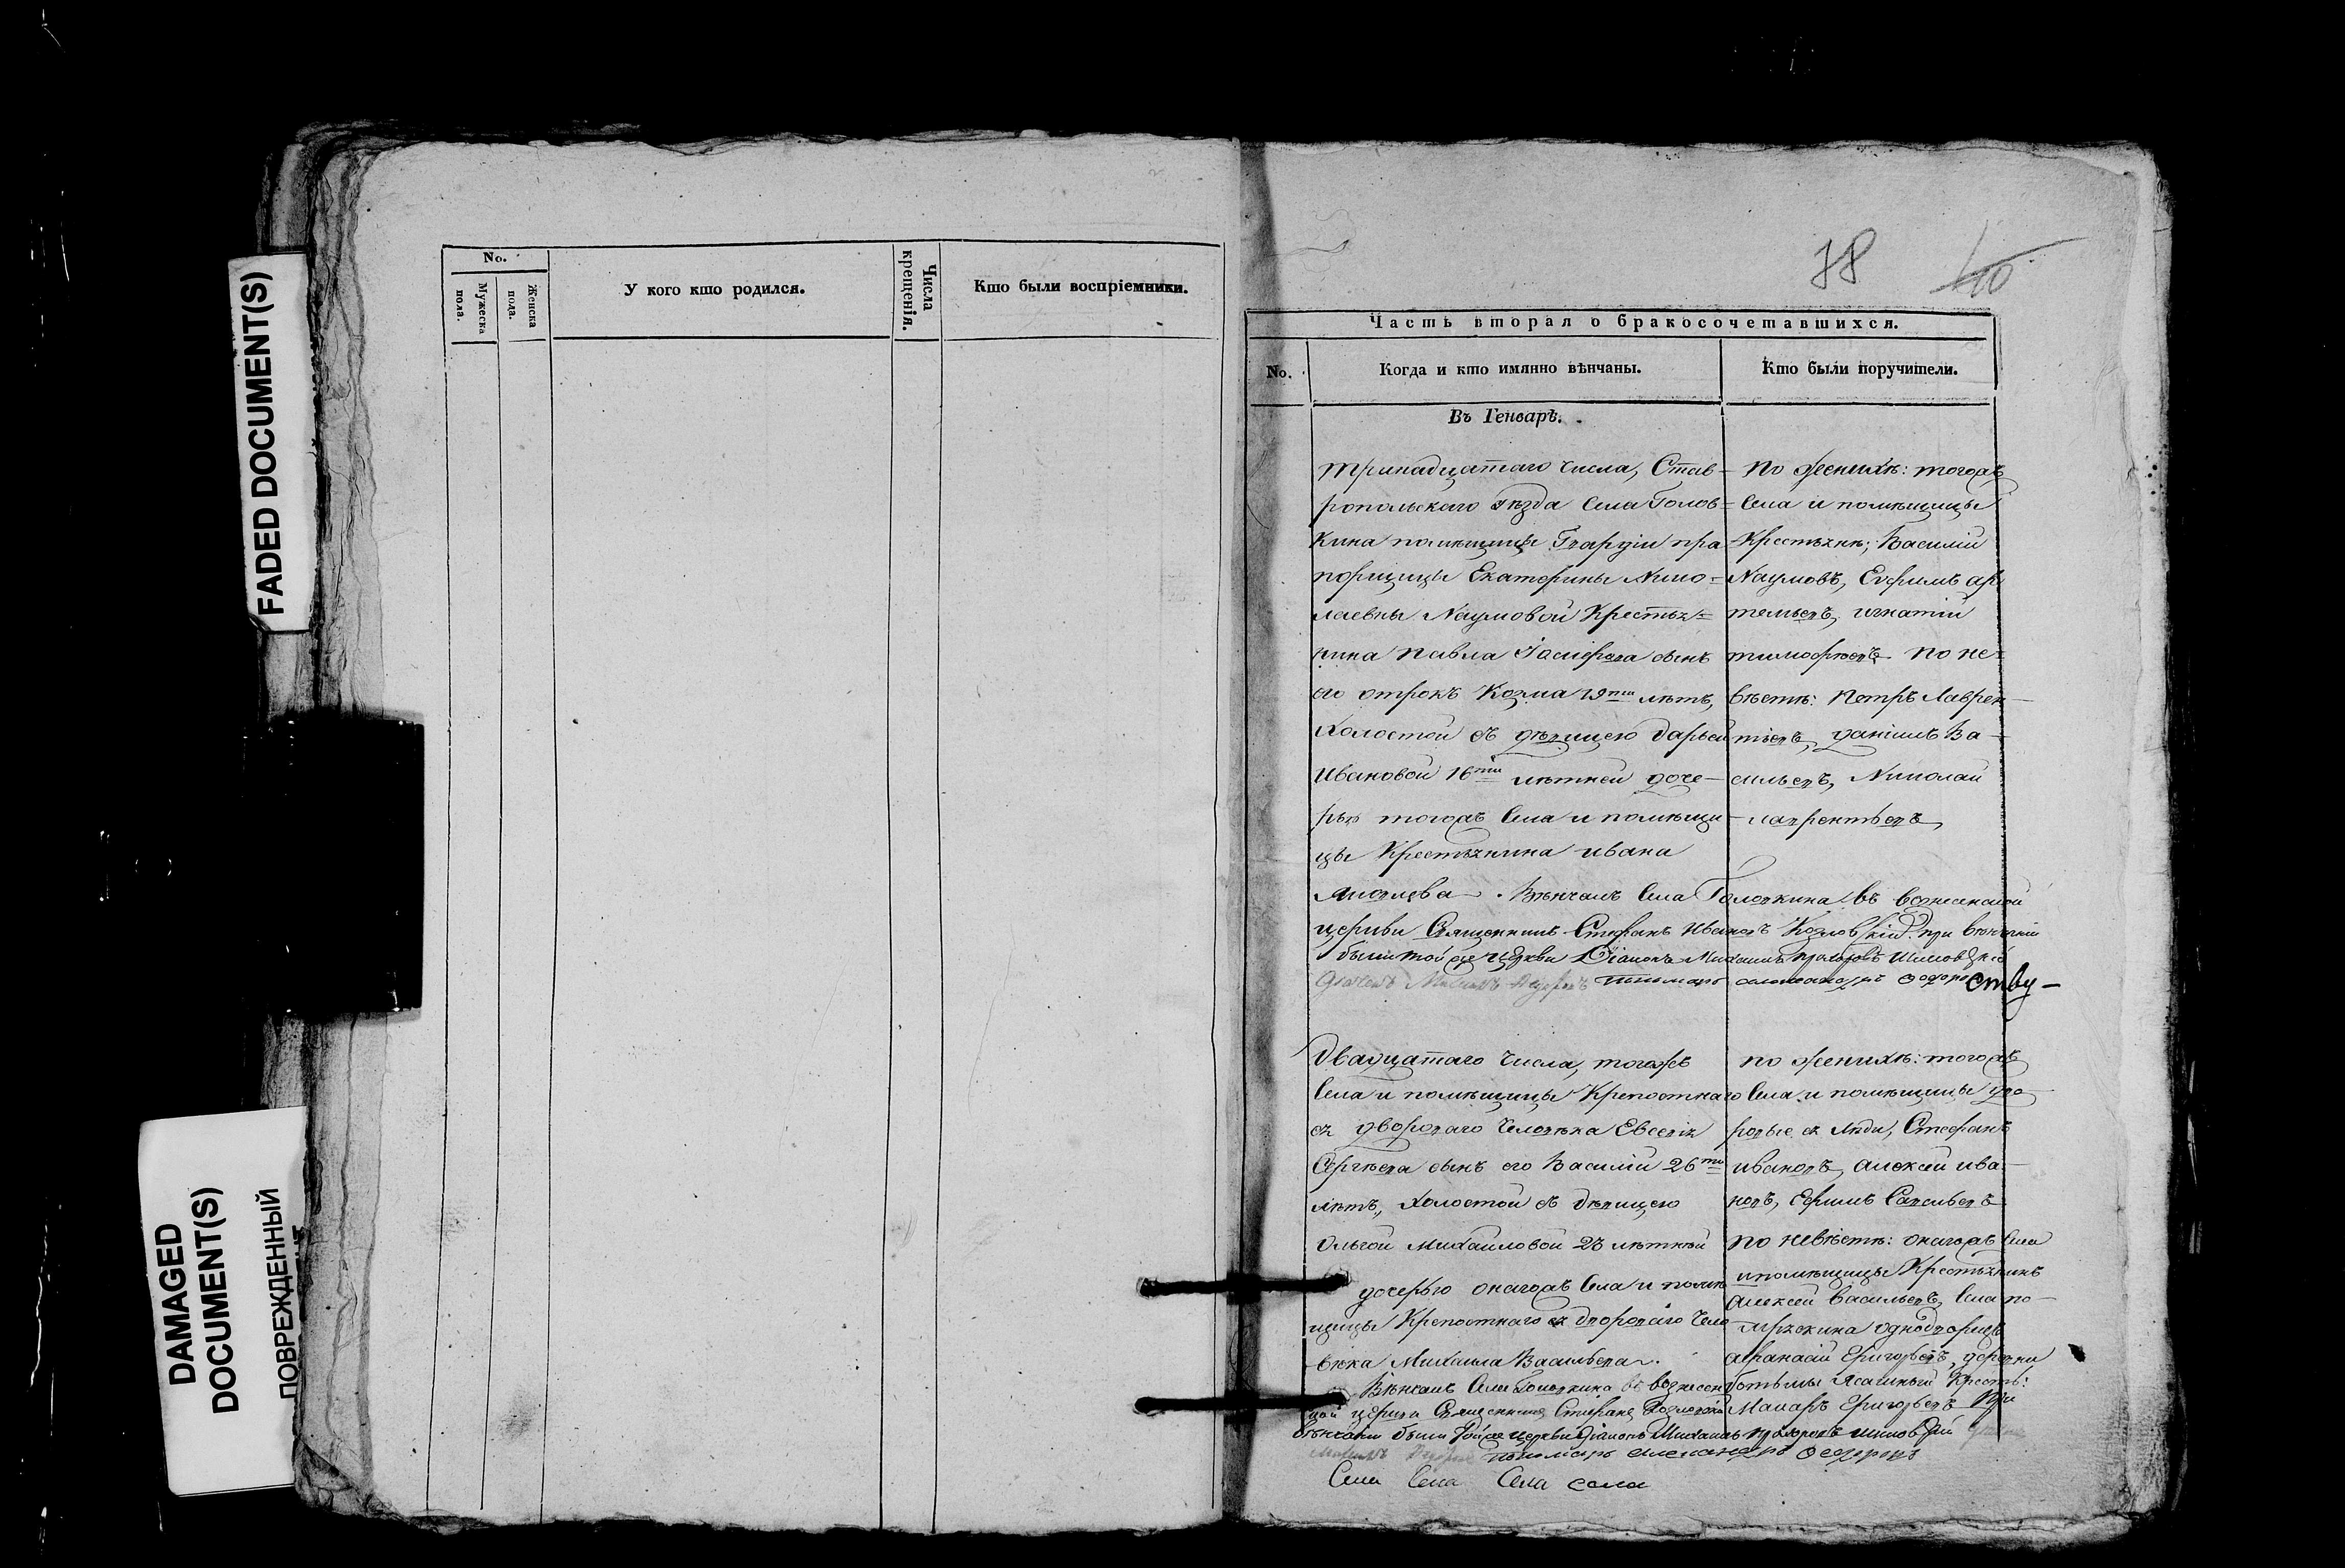 FADED DOCUMENT(S)
DAMAGED
DOCUMENT(S)
ПОВРЕЖДЕННЫЙ
No.
Мужеска
пола.
Женска
пола.
У кого кто родился.
Числа
крещенія.
Кто были воспріемники.
78
40
Часть вторая о бракосочетавшихся.
No.
Когда и кто имянно вѣнчаны.
Кто были поручители.
Въ Генварѣ.
тринадцатаго числа, Став-
ропольскаго уѣзда села Голов-
кина помѣщицы Гвардіи пра-
порщицы Екатерины Нико-
лаевны Наумовой Крестья-
нина Павла Іосифова сынъ
его отрокъ Козма 19ти лѣтъ,
холостой съ дѣвицею Дарьей
Ивановой 16ти лѣтней доче-
рью тогожъ села и помѣщи-
цы Крестьянина Ивана
Яковлева. Вѣнчалъ села Головкина въ вознесенской
церкви Священникъ Стефанъ Ивановъ Козловскій. при вѣнчаніи
были той же церкви Діаконъ Михаилъ
пономарь Александръ Федоровъ
ству-
по женихѣ: тогожъ
села и помѣщицы
Крестьяне; Василій
Наумовъ, Ефимъ Ар-
темьевъ, Игнатій
Тимофѣевъ по не-
вѣстѣ: Петръ Лаврен-
тьевъ, Данилъ Ва-
сильевъ, Николай
Лаврентьевъ,
Двадцатаго числа, тогожъ
села и помѣщицы Крепостнаго
ея двороваго человѣка Евсевія
Сергѣева сынъ его Василій 26ти
лѣтъ, холостой съ дѣвицею
Ольгой Михайловой 23 лѣтней
дочерью онагожъ села и помѣ-
щицы Крепостнаго ея двороваго чело-
вѣка Михаила Васильева.
Вѣнчалъ села Головкина въ вознесен-
ской церкви Священникъ Стефанъ Козловскій
при вѣнчаніи были той же церкви Діаконъ Михаилъ
пономарь Александръ Федоровъ
по женихѣ: тогожъ
села и помѣщицы дво-
ровые ея люди, Стефанъ
Ивановъ, Алексей Ива-
новъ, Ефимъ Савельевъ
по невѣстѣ: онагожъ села
и помѣщицы Крестьянинъ
Алексей Васильевъ, села
однодворецъ
Афанасій Григорьевъ, деревни
ясашный Крест:
Макаръ Григорьевъ
Села Села Села села